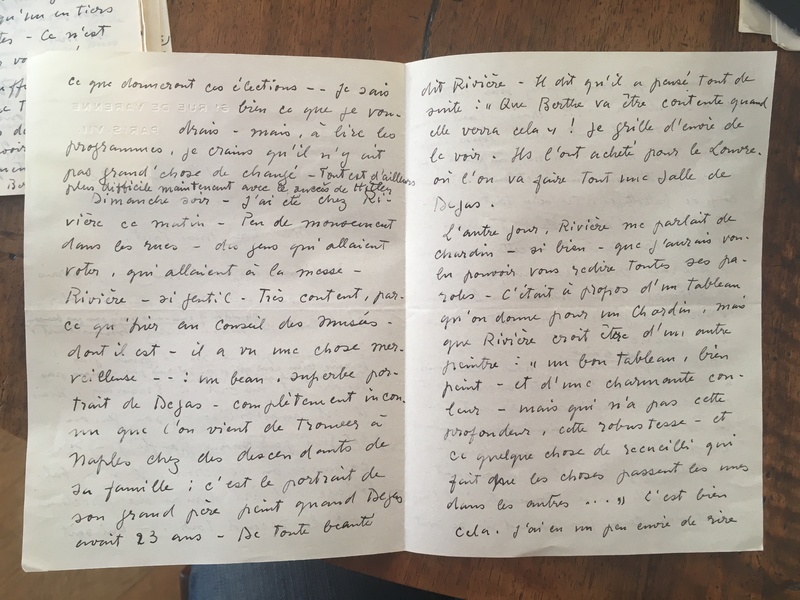 qu'un en tiers
Ce n'est
ce que donneront ces élections -- je sais
bien ce que je vou-
drais - mais, à lire les
programmes, je crains qu'il n'y ait
pas grand'chose de changé - Tout est d'ailleurs
plus difficile maintenant avec le succès de Hitler
Dimanche soir - J'ai été chez Ri-
vière ce matin - Peu de mouvement
dans les rues - des gens qui allaient
voter, qui allaient à la messe -
Rivière - si gentil - Très content, par-
ce qu'hier au Conseil des Musées -
dont il est - il a vu une chose mer-
veilleuse -- : un beau, superbe por-
trait de Degas - complètement incon-
nu que l'on vient de trouver à
Naples chez des descendants de
sa famille ; c'est le portrait de
son grand père peint quand Degas
avait 23 ans - De toute beauté
51 RUE DE VARENNE
PARIS VII.
dit Rivière - Il dit qu'il a pensé tout de
suite : " Que Berthe va être contente quand
elle verra cela " ! Je grille d'envie de
le voir. Ils l'ont acheté pour le Louvre.
où l'on va faire tout une salle de
Degas.
L'autre jour, Rivière me parlait de
Chardin - si bien - que j'aurais vou-
lu pouvoir vous redire toutes ses pa-
roles - C'était à propos d'un tableau
qu'on donne pour un Chardin, mais
que Rivière croit être d'un autre
peintre : " un bon tableau, bien
peint - et d'une charmante cou-
leur - mais qui n'a pas cette
profondeur, cette robustesse - et
ce quelque chose de recueilli qui
fait que les choses passent les unes
dans les autres ... " C'est bien
cela. J'ai eu un peu envie de rire